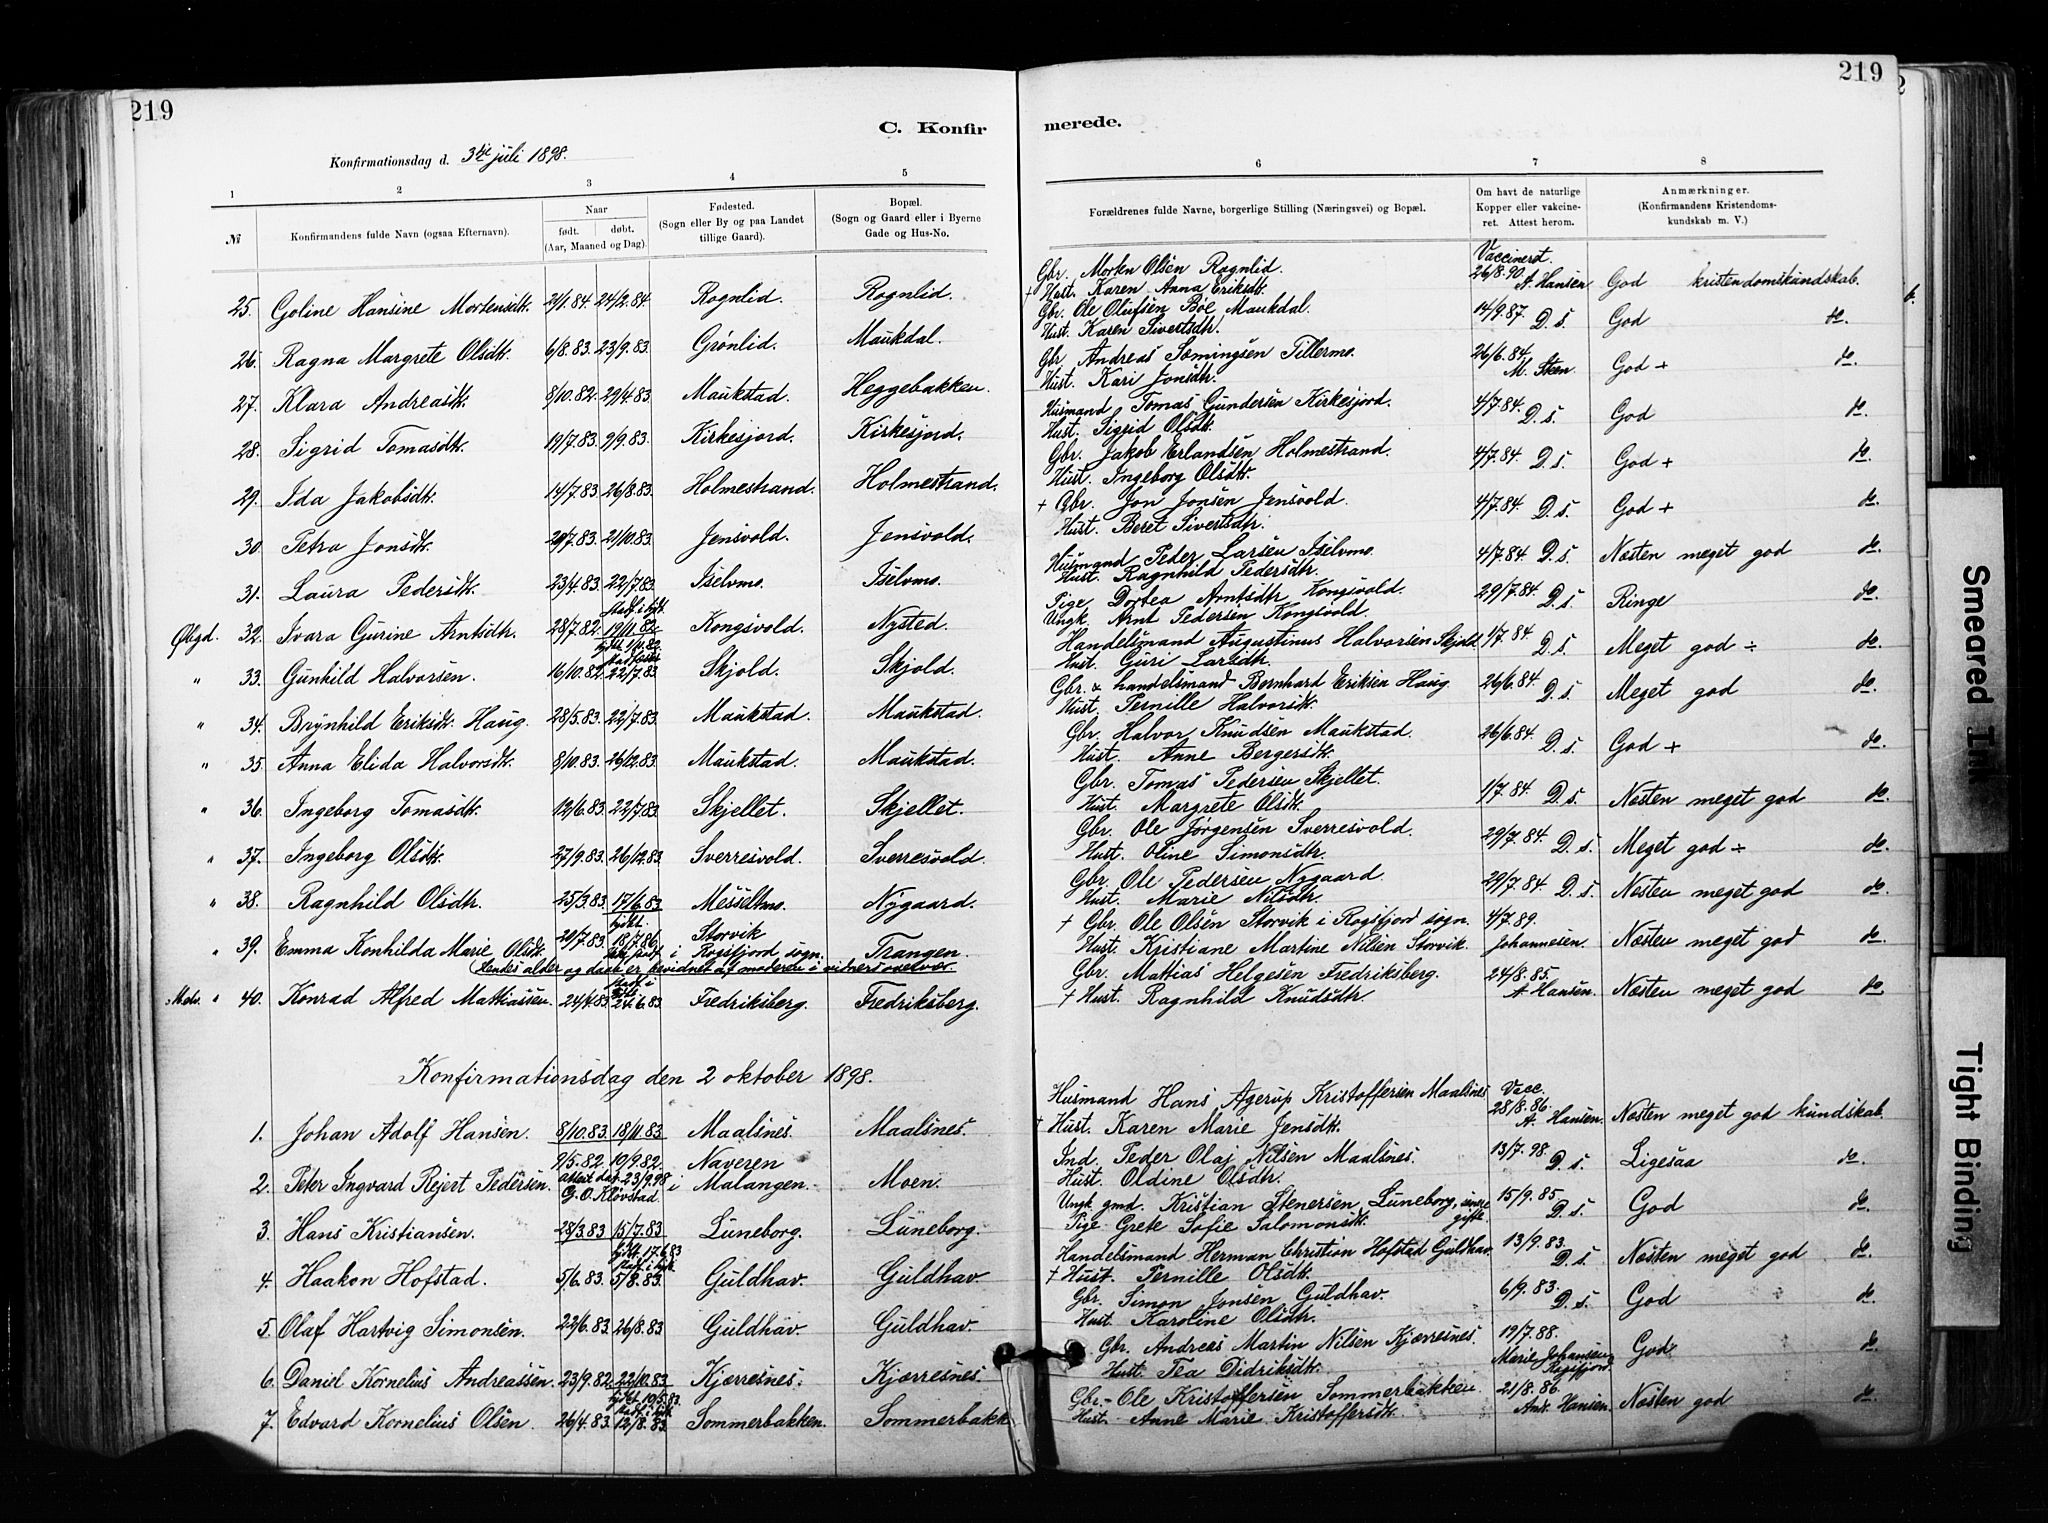 219
219
C. Konfirmerede.
Konfirmationsdag d. 3die juli 1898.
1 2 3 4 5 6 7 8
№ Konfirmandens fulde Navn (ogsaa Efternavn). Naar født. døbt. (Aar, Maaned og Dag). Fødested. (Sogn eller By og paa Landet tillige Gaard). Bopæl. (Sogn og Gaard eller i Byerne Gade og Hus-No. Forældrenes fulde Navne, borgerlige Stilling (Næringsvei) og Bopæl. Om havt de naturlige Kopper eller vakcineret. Attest herom. Anmærkninger. (Konfirmandens Kristendomskundskab m. V.)
Gbr. Morten Olsen Rognlid. Vaccineret.
25. Goline Hansine Mortensdtr. 21/1.84 24/2.84 Rognlid. Rognlid. † Hust. Karen Anna Eriksdtr. 26/8.90. A. Hansen God kristendomskundskab.
Gbr. Ole Olufsen Böe Maukdal.
26. Ragna Margrete Olsdtr. 6/8.83. 23/9.83. Grønlid. Maukdal. Hust. Karen Sivertsdtr. 14/9.87. D. s. God do.
Gbr. Andreas Sæmingsen Tillermo.
27. Klara Andreasdtr. 8/10.82. 29/4.83. Maukstad. Heggebakken. Hust. Kari Jonsdtr. 26/6.84. M. Steen. God + do.
Husmand Tomas Gundersen Kirkesjord.
28. Sigrid Tomasdtr. 19/7.83. 9/9.83. Kirkesjord. Kirkesjord. Hust. Sigrid Olsdtr. 4/7.84. D. s. God do.
Gbr. Jakob Erlandsen Holmestrand.
29. Ida Jakobsdtr. 14/7.83. 26/8.83. Holmestrand. Holmestrand. Hust. Ingeborg Olsdtr. 4/7.84. D. s. God + do.
† Gbr. Jon Jonsen Jensvold.
30. Petra Jonsdtr. 29/7.83. 21/10.83. Jensvold. Jensvold. Hust. Beret Sivertsdtr. 4/7.84. D. s. God + do.
Husmand Peder Larsen Iselvmo.
31. Laura Pedersdtr. 23/4.83. 22/7.83. Iselvmo. Iselvmo. Hust. Ragnhild Pedersdtr. 4/7.84. D. s. Næsten meget god do.
Pige Dortea Arntsdtr Kongsvold.
Øbgd. 32. Ivara Gurine Arntsdtr. 28/7.82. 19/11.82. Kongsvold. Nysted. Ungk. Arnt Pedersen Kongsvold. 29/7.84. D. s. Ringe do.
Handelsmand Augustinus Halvorsen Skjold.
" 33. Gunhild Halvorsen. 16/10.82. 22/7.83 Skjold. Skjold. Hust. Guri Larsdtr. 1/7.84. D. s. Meget god ÷ do.
Gbr. & handelsmand Bernhard Eriksen Haug.
" 34. Brynhild Eriksdtr. Haug. 28/5.83. 22/7.83. Maukstad. Maukstad. Hust. Pernille Halvorsdtr. 26/6.84. D. s. Meget god do.
Gbr. Halvor Knudsen Maukstad.
" 35. Anna Elida Halvorsdtr. 8/10.83. 26/12.83. Maukstad. Maukstad. Hust. Anne Bergersdtr. 26/6.84. D. s. God + do.
Gbr. Tomas Pedersen Skjellet.
" 36. Ingeborg Tomasdtr. 12/6.83. 22/7.83 Skjellet. Skjellet. Hust. Margrete Olsdtr. 1/7.84. D. s. Næsten meget god do.
Gbr. Ole Jørgensen Sverresvold.
" 37. Ingeborg Olsdtr. 27/9.83. 26/12.83 Sverresvold. Sverresvold. Hust. Oline Simonsdtr. 29/7.84. D. s. Meget god ÷ do.
Gbr. Ole Pedersen Nygaard.
" 38. Ragnhild Olsdtr. 25/3.83. 17/6.83 Messeltmo. Nygaard. Hust. Marie Nilsdtr. 29/7.84. D. s. Næsten meget god do.
† Gbr. Ole Olsen Storvik i Rogsfjord sogn.
" 39. Emma Konhilda Marie Olsdtr. 29/7.83. 18/7.86. Storvik i Rogsfjord sogn. Trangen. Hust. Kristiane Martine Nilsen Storvik. 4/7.89. Johannesen. Næsten meget god do.
(Hendes alder og daab er bevidnet af moderen i vidners overvær.
Gbr. Mattias Helgesen Fredriksberg.
Malv. " 40. Konrad Alfred Mathiassen. 24/4.83. 24.6.83 Fredriksberg. Fredriksberg. † Hust. Ragnhild Knudsdtr. 24/8.85. A. Hansen. Næsten meget god do.
Konfirmationsdag den 2 oktober 1898.
Husmand Hans Agerup Kristoffersen Maalsnes Vacc.
1. Johan Adolf Hansen. 8/10.83. 18/11.83 Maalsnes. Maalsnes. † Hust. Karen Marie Jensdtr. 28/8.86. A. Hansen. Næsten meget god kundskab.
9/5.82. 10/9.82. Naveren Ind. Peder Olaj Nilsen Maalsnes.
2. Peter Ingvard Rejert Pedersen. attest dat. 23/9.98 G. O. Kløvstad i Malangen. Moen. Hust. Oldine Olsdtr. 13/7.98. D. s. Ligesaa do.
Ungk. gmd. Kristian Stenersen Luneborg,
3. Hans Kristiansen. 28/3.83 15/7.83 Luneborg. Luneborg. Pige Grete Sofie Salomonsdtr. 15/9.85. D. s. God do.
Handelsmand Herman Christian Hofstad Guldhav.
4. Haakon Hofstad. 5/6.83. 5/8.83. Guldhav. Guldhav † Hust. Pernille Olsdtr. 13/9.83. D. s. Næsten meget god do.
Gbr. Simon Jonsen Guldhav.
5. Olaf Hartvig Simonsen. 22/6.83. 26/8.83 Guldhav. Guldhav. Hust. Karoline Olsdtr. 6/9.83. D. s. God do.
Gbr. Andreas Martin Nilsen Kjærresnes.
6. Daniel Kornelius Andreassen. 23/9.82. 22/10.83 Kjærresnes. Kjærresnes. Hust. Tea Didriksdtr. 19/7.88. Marie Johansen God do.
Gbr. Ole Kristoffersen Sommerbakken
7. Edvard Kornelius Olsen. 26/4.83. 12/8.83. Sommerbakken. Sommerbakk Hust. Anne Marie Kristoffersdtr. 21/8.86. And. Hansen. Næsten god do.
Smeared Ink
Tight Binding